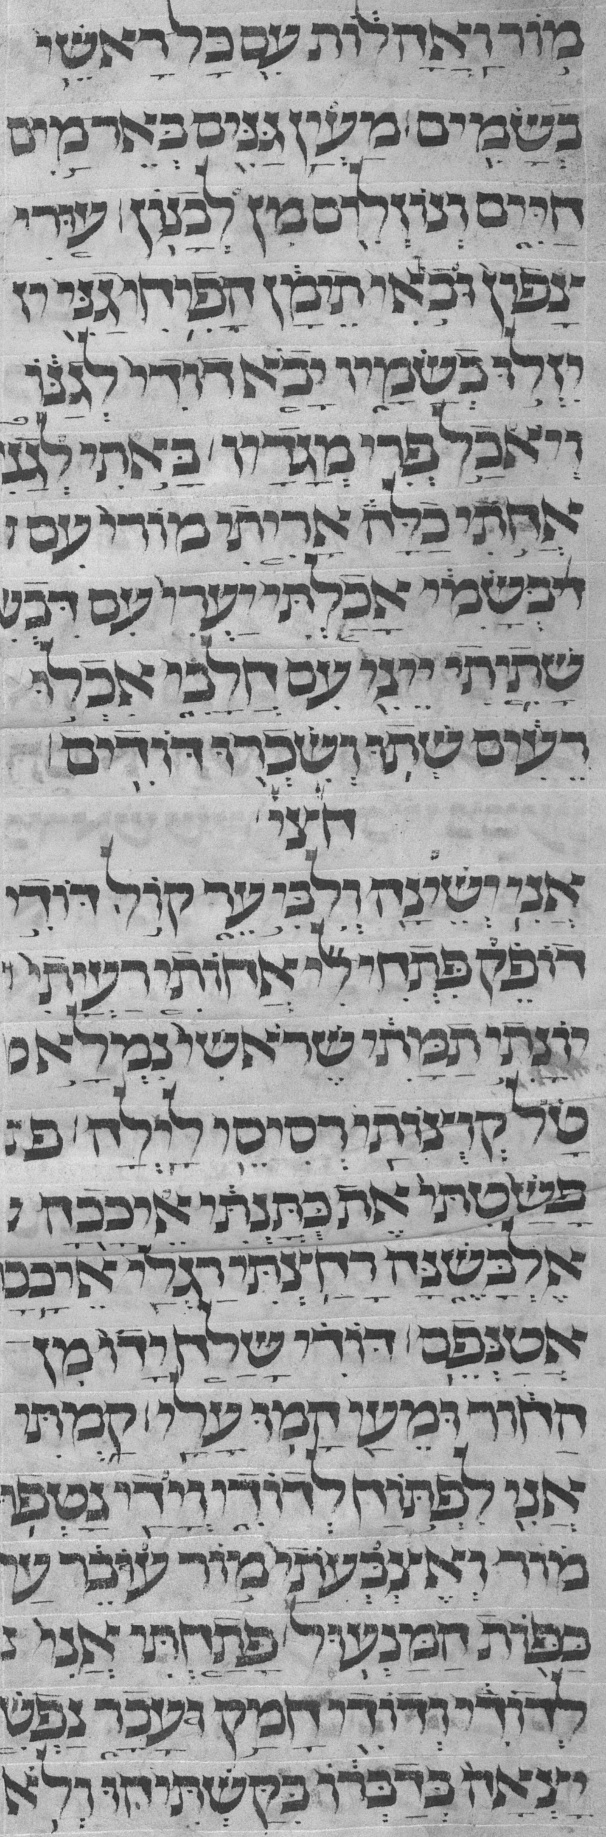 מור ואהלות עם כל ראשי
בשמים מעין גנים באר מים
חיים ונוזלים מן לבנון עורי
צפון ובואי תימן הפיחי גני יז
יזלו בשמיו יבא דודי לגנו
ויאכל פרי מגדיו באתי לגני
אחתי כלה אריתי מורי עם
בשמי אכלתי יערי עם דבש
שתיתי ייני עם חלבי אכלו
רעים שתו ושכרו דודים
חצי
אני ישינה ולבי ער קול דודי
דופק פתחי לי אחותי רעיתי י
יונתי תמתי שראשי נמלא
טל קוצותי רסיסי לילה פ
פשטתי את כתנתי איככה
אלבשנה רחצתי רגלי איככ
אטנפם דודי שלח ידו מן
החור ומעי המו עלי קמתי
אני לפתוח לדודי וידי נטפו
מור ואצבעתי מור עובר על
כפות המנעול פתחתי אני
לדודי ודודי חמק ועבר נפש
יצאה בדברו בקשתיהו ולא